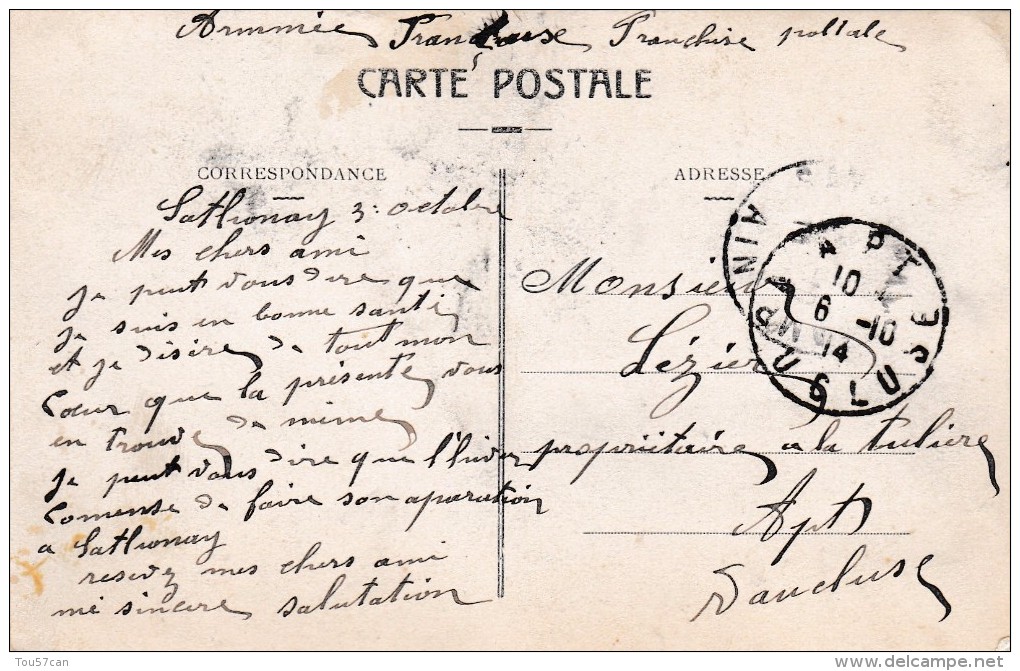 Armmée Francaise Franchise postale
CARTE POSTALE
CORRESPONDANCE
ADRESSE
Sathonay 3 : octobre
Mes chers ami
Je peut vous dire que
Je suis en bonne santé
et je désire de tout mon
Cœur que la présente vous
en trouve de mime
Je peut vous dire que l'hiver
Comense de faire son aparution
a Sathonay
resevez mes chers ami
mé sincere salutation
Monsieur
Lézier
propriitaire a la tuliere
Apt
Vaucluse
AIN
APT
10
6 -10
14
VAUCLUSE
Tou57can
www.delcampe.net